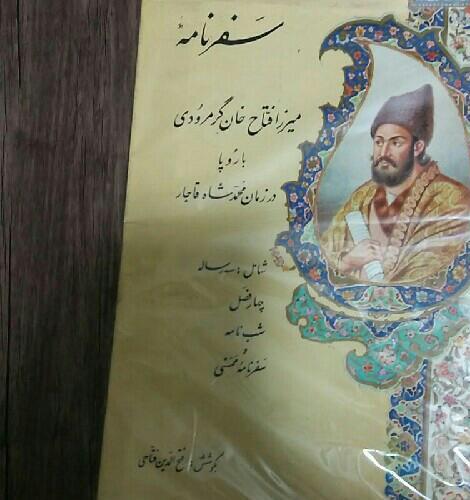 سفرنامهٔ
میرزا فتاح خان گرمرودی
باروپا
در زمان محمد شاه قاجار
شامل: سه رساله
چهار فصل
شب نامه
و
سفرنامه ممسنی
بکوشش: فتح الدین فتاحی